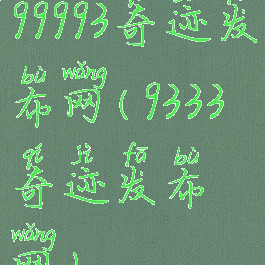 99993奇迹发
bù wǎng
布网(9333
qí jì fā bù
奇迹发布
wǎng
网)